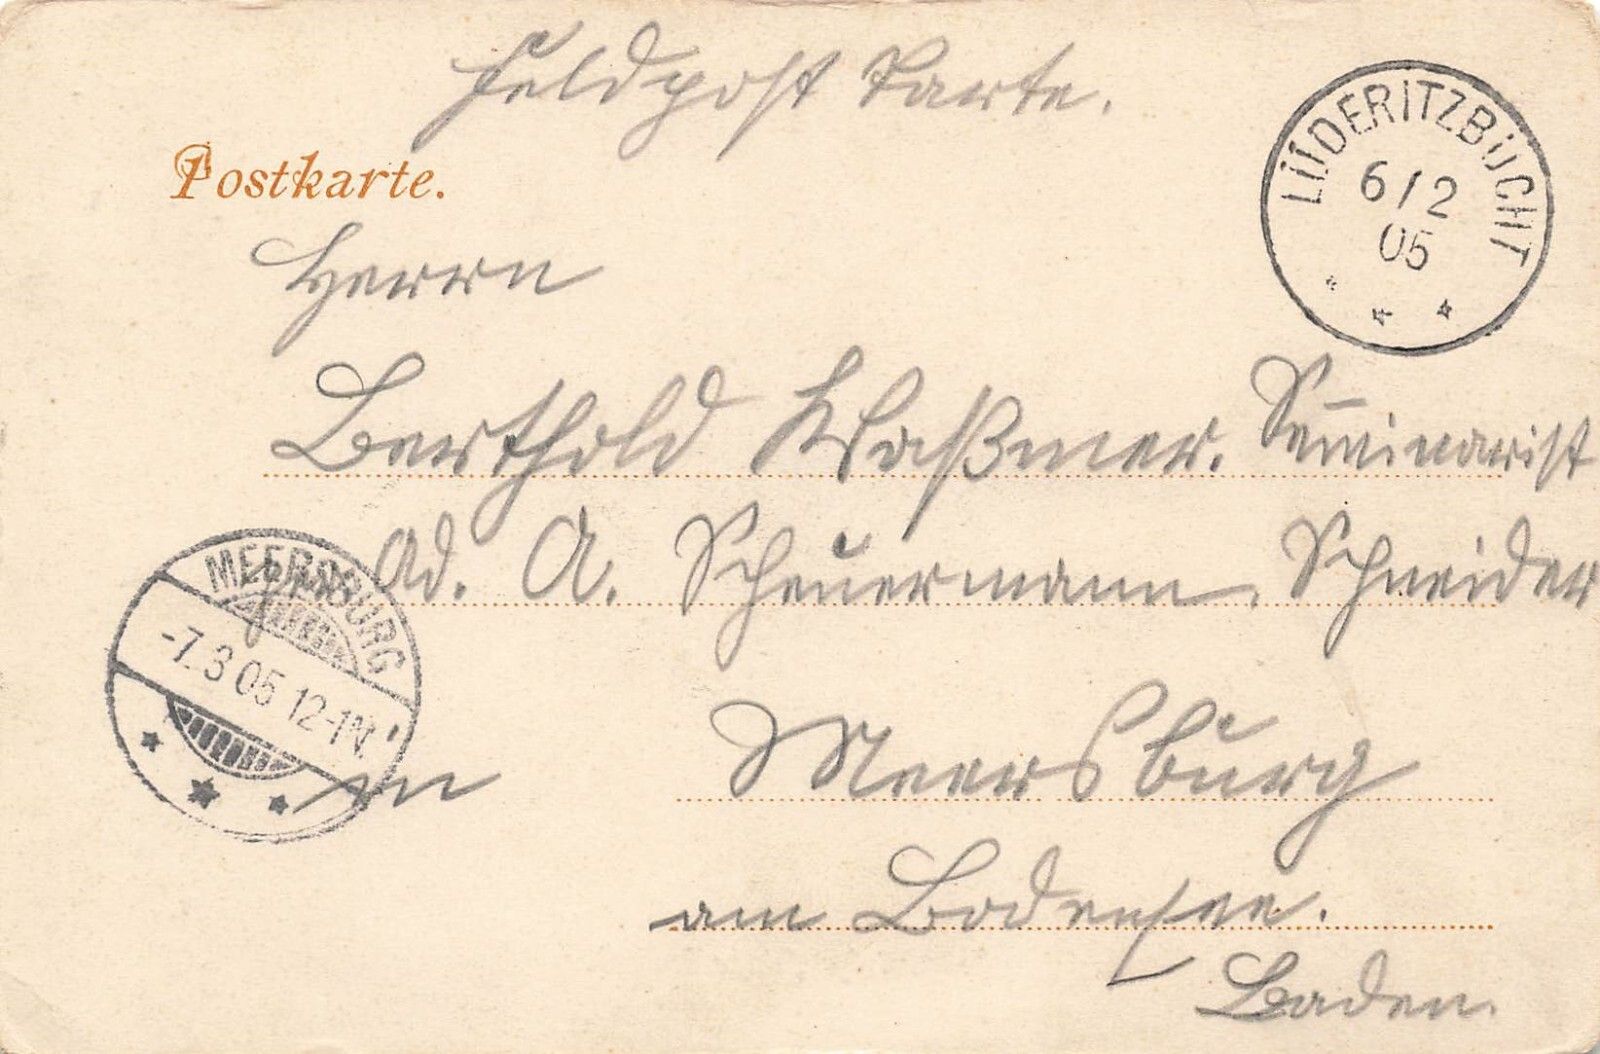 Feldpost Karte.
LÜDERITZBUCHT
6/2
05
Postkarte.
Herrn
Berthold Waßmer. Seminarist
Ad. A. Scheuermann, Schneider
MEERSBURG
-7.3 05 12-1N.
in Meersburg
am Bodensee.
Baden.